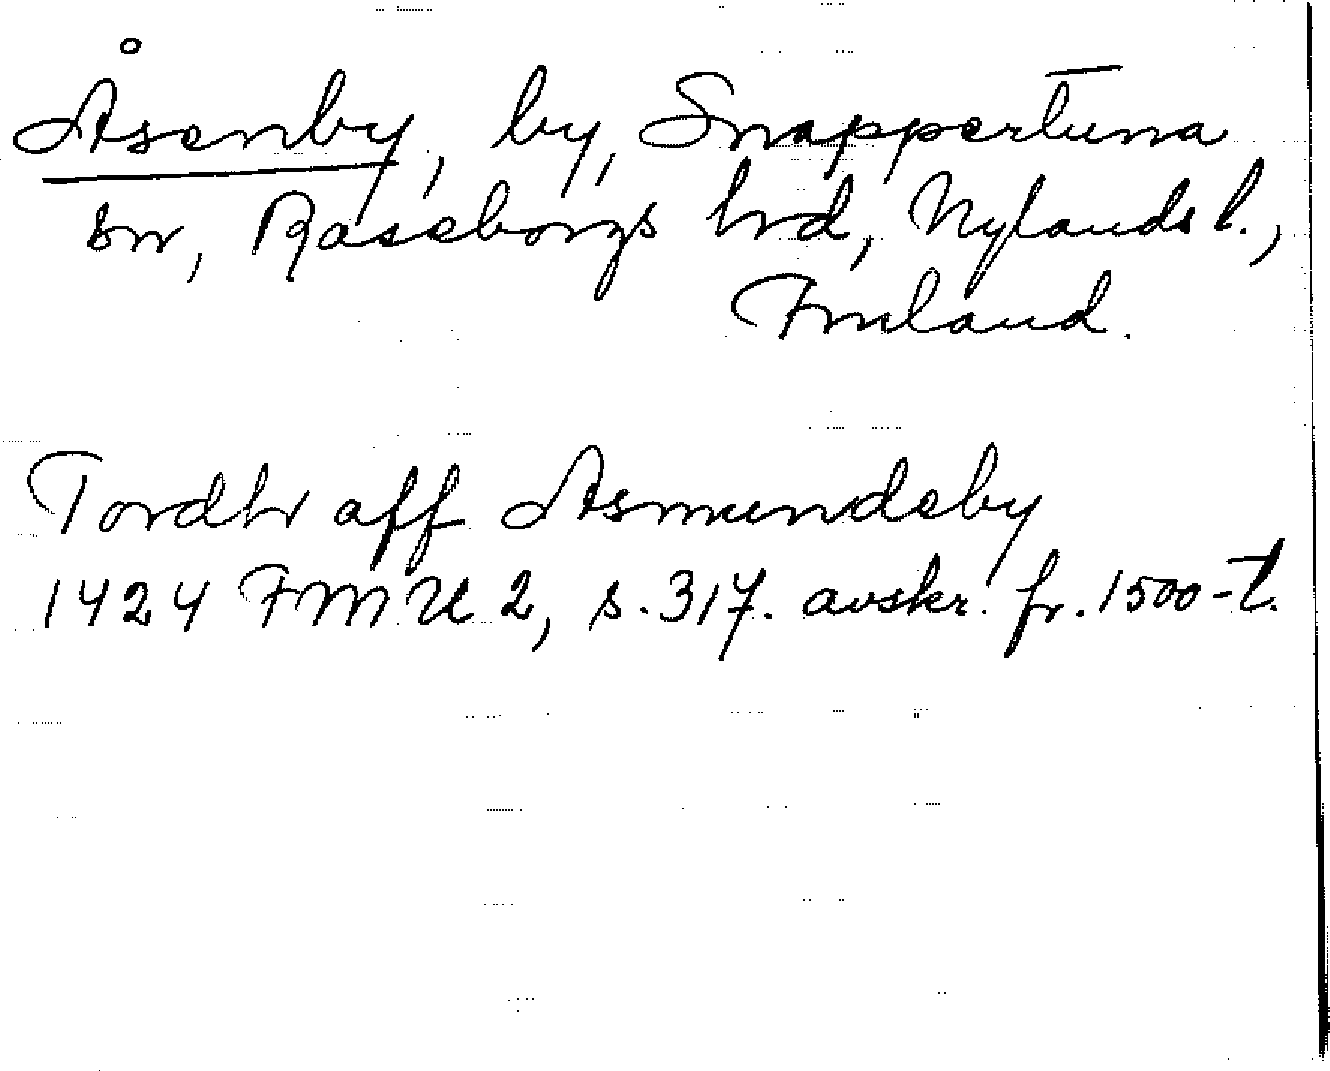 Åsenby, by, Snappertuna
sn, Raseborgs hrd, Nylands l.,
Finland.
Tordhr aff Asmundeby
1424 FMU 2, s. 317. avskr. fr. 1500-t.